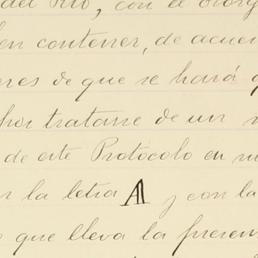 del Río, con el otorg
en contener, de acuer
nes de que se hará
por tratarse de un
de este Protocolo en mi
r la letra A y con la
o que lleva la presen